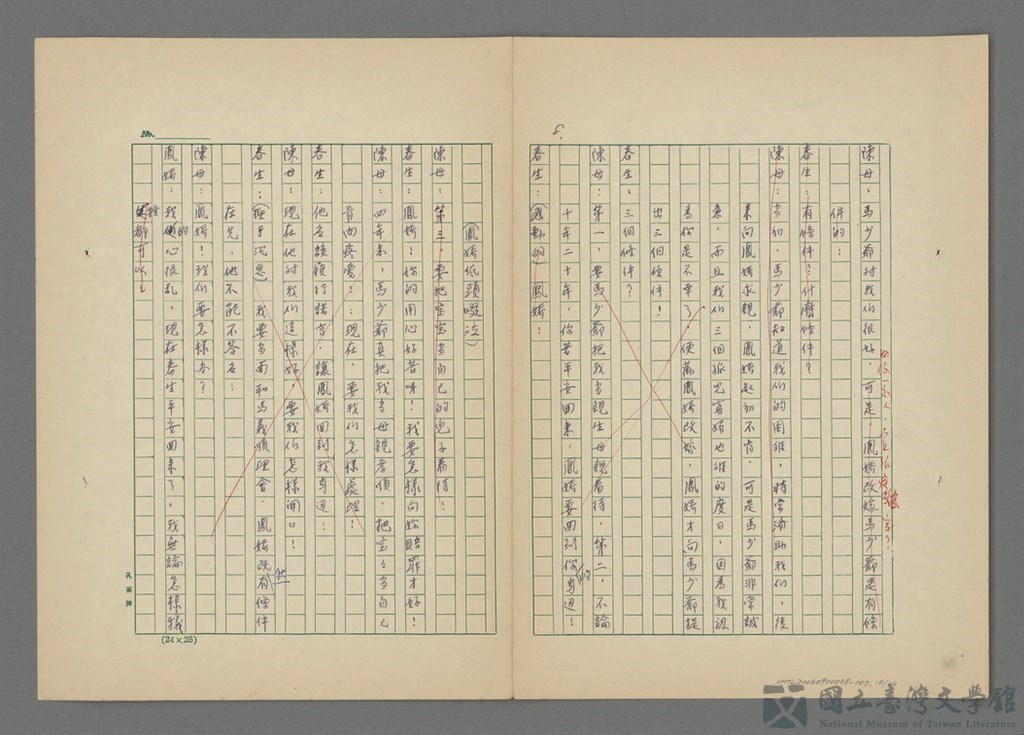 8.
陳母：馬少爺对我们很好，可是，鳳嬌改嫁馬少爺是有條
件的：
春生：有條件？什麼條件？
陳母：当初，馬少爺知道我们的困难，時常済助我们，後
来向鳳嬌求親，鳳嬌起初不肯，可是馬少爺非常誠
意，而且我们三個孤児寡婦也难的度日，因為我認
為你是不幸了，便為鳳嬌改婚，鳳嬌才向馬少爺提
出三個條件！
春生：三個條件？
陳母：第一，要馬少爺把我当親生母親看待，第二，不論
十年二十年，你若平安回来，鳳嬌要回到你的身边！
春生：（感動的）鳳嬌！
（鳳嬌低頭啜泣）
陳母：第三，要把宝宝当自己的児子看待！
春生：鳳嬌！妳的用心好苦呀！我要怎樣向妳賠罪才好！
陳母：四年来，馬少爺真把我当母親孝順，把宝々当自己
骨肉疼愛！：現在，要我们怎樣處理！
春生：他若該履行諾言，讓鳳嬌回到我身边！
陳母：現在他对我们這樣好，要我们怎樣開口！
春生：（沉思）我要当面和馬義順理會，鳳嬌既然有條件
在先，他不能不答应！
陳母：鳳嬌！我们要怎樣办？
鳳嬌：我的心很乱，現在春生平安回来了，我無論怎樣犧
牲都可以！
No.
(24×25)
孔雀牌
國立臺灣文學館
National Museum of Taiwan Literature